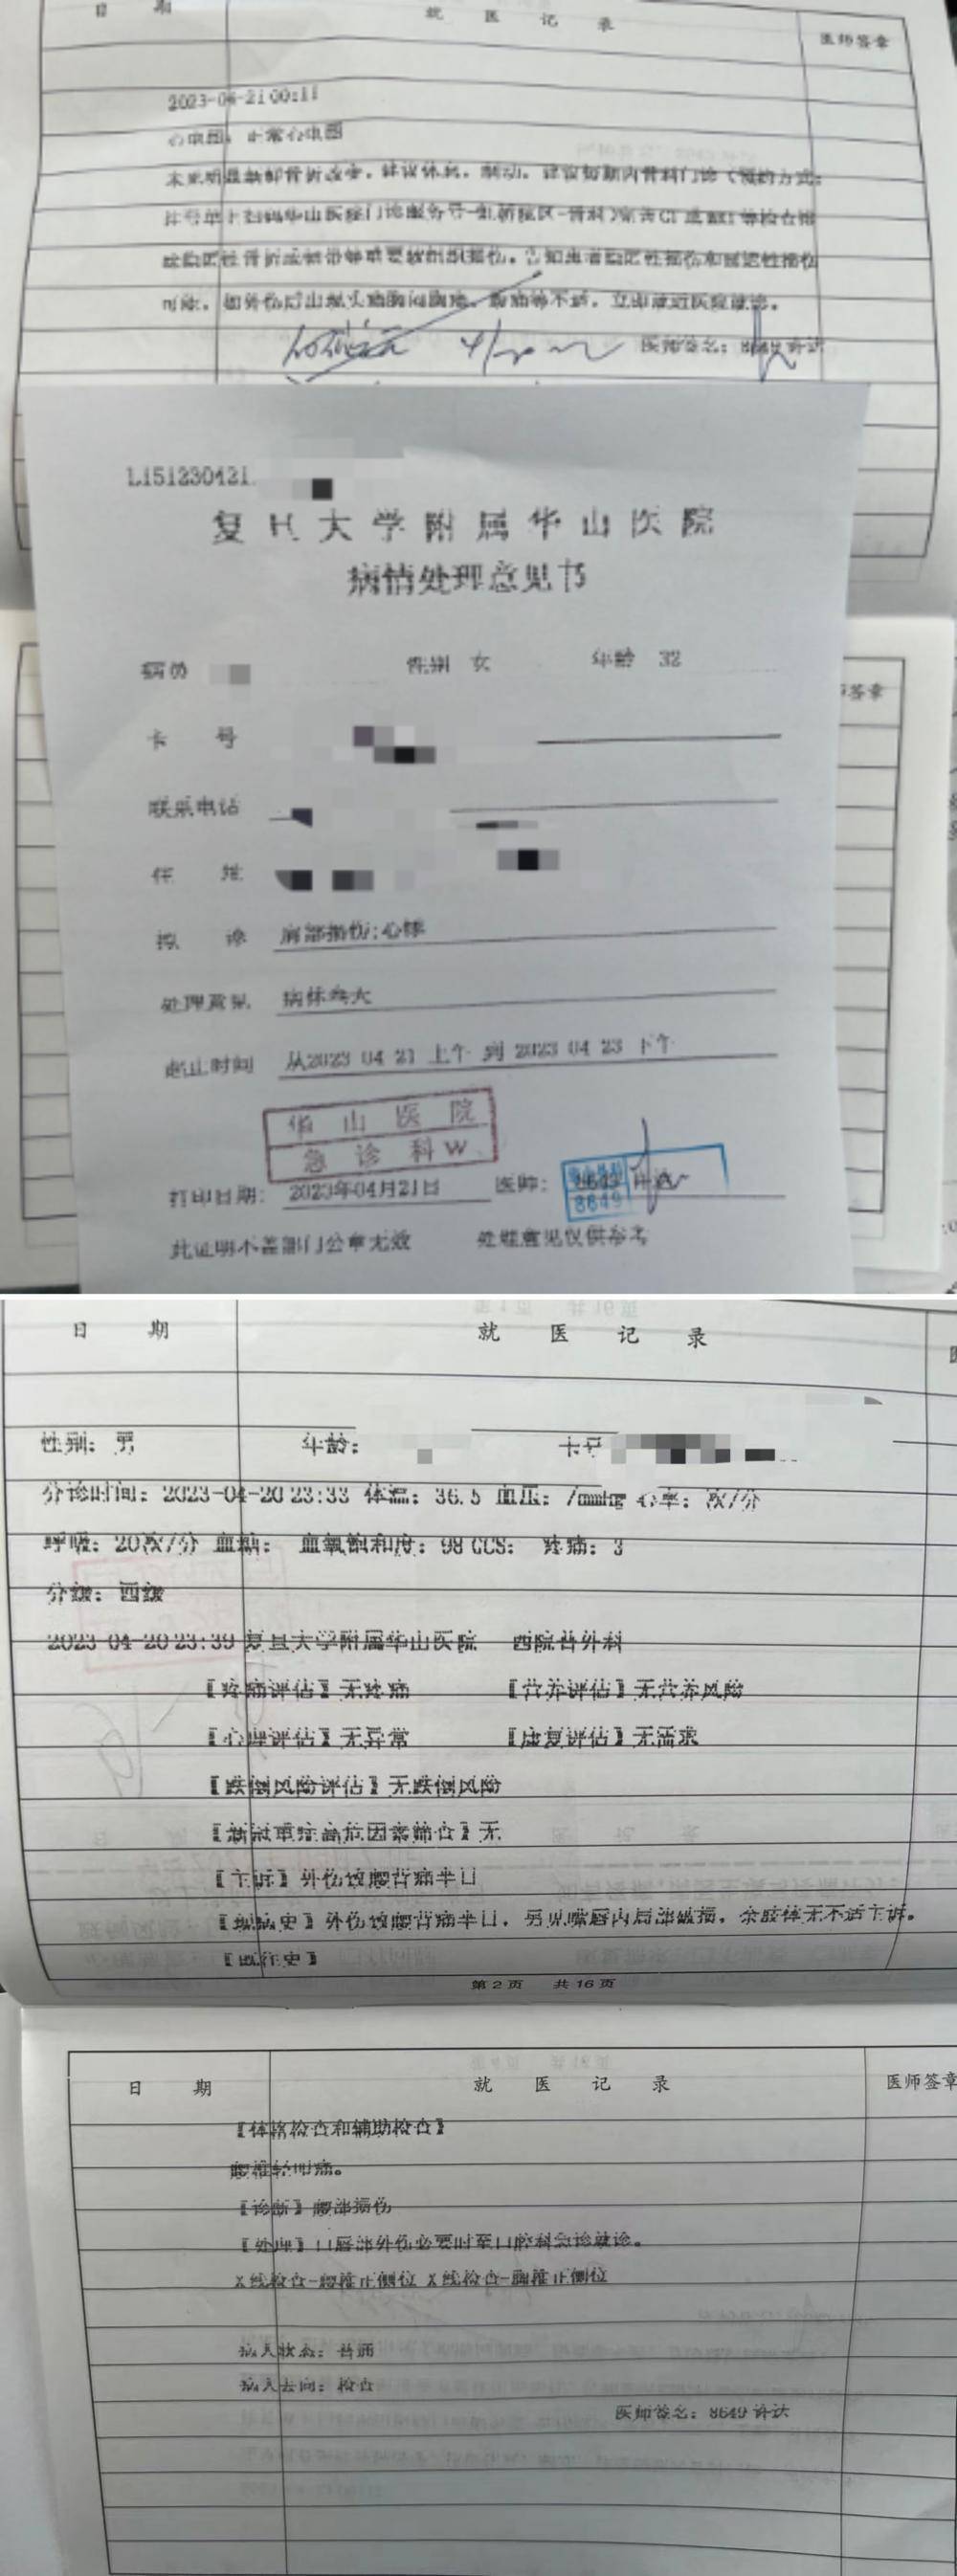 日 期 就 医 记 录 医师签章
2023-04-21 00:11
心电图：正常心电图
未见明显骨折改变，建议休息，制动，建议短期内骨科门诊（预约方式：
挂号单上扫码华山医院门诊服务号-虹桥院区-骨科）完善CT或MRI等检查排
除隐匿性骨折或韧带等重要软组织损伤。告知患者隐匿性损伤和迟发性损伤
可能，如外伤后出现头痛胸闷腹痛、等不适，立即就近医院就诊。
医师签名：8649 许达
L151230421
复旦大学附属华山医院
病情处理意见书
签章
病员 性别 女 年龄 32
卡 号
联系电话
住 址
拟 诊 肩部损伤;心悸
处理意见 病休叁天
起止时间 从2023 04 21 上午 到 2023 04 23 下午
华山医院
急诊科W
打印日期： 2023年04月21日 医师： 8649 许达
8649
此证明不盖部门公章无效 处理意见仅供参考
日 期 就 医 记 录
性别：男 年龄： 卡号
分诊时间：2023-04-20 23:33 体温：36.5 血压：/mmhg 心率：次/分
呼吸：20次/分 血糖： 血氧饱和度：98 GCS： 疼痛：3
分级：四级
2023-04-20 23:39 复旦大学附属华山医院 西院普外科
【疼痛评估】无疼痛 【营养评估】无营养风险
【心理评估】无异常 【康复评估】无需求
【跌倒风险评估】无跌倒风险
【新冠重症高危因素筛查】无
【主诉】外伤致腰背痛半日
【现病史】外伤致腰背痛半日，另见嘴唇内局部破损，余肢体无不适主诉。
【既往史】
第 2 页 共 16 页
日 期 就 医 记 录 医师签章
【体格检查和辅助检查】
腰椎轻叩痛。
【诊断】腰部损伤
【处理】口唇部外伤必要时至口腔科急诊就诊。
X线检查-腰椎正侧位 X线检查-胸椎正侧位
病人状态：普通
病人去向：检查
医师签名：8649 许达